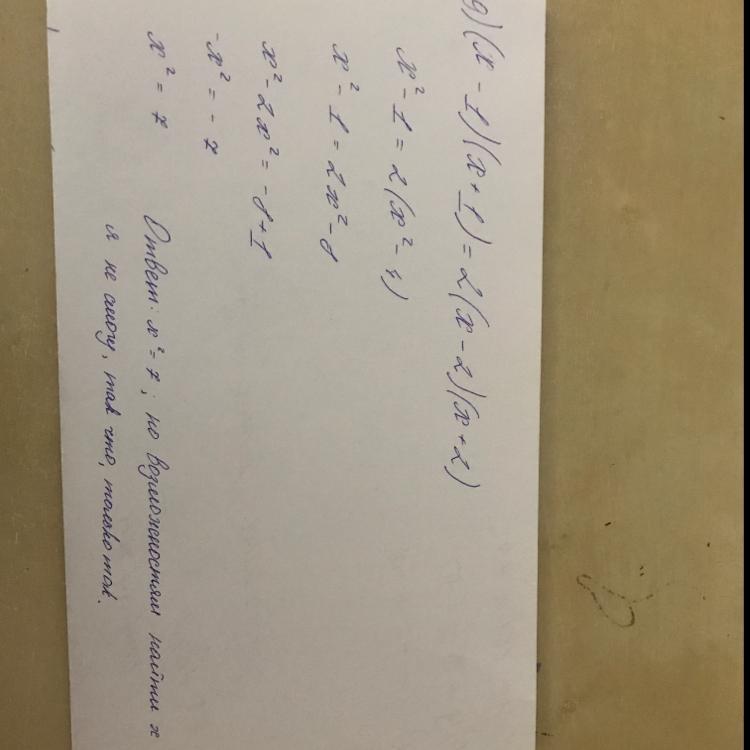 д) (x - 1)(x + 1) = 2(x - 2)(x + 2)
x² - 1 = 2(x² - 4)
x² - 1 = 2x² - 8
x² - 2x² = -8 + 1
-x² = -7
x² = 7
Ответ: x² = 7; но возможностям найти x
я не смогу, так что, только так.